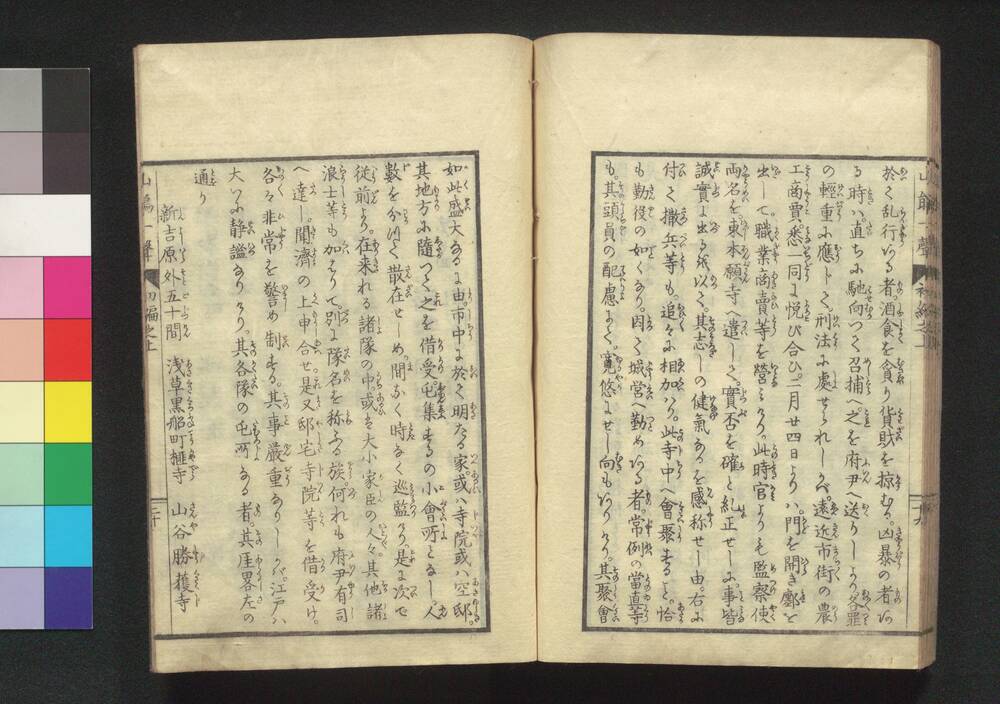 於て乱行いる者酒食を貪り貨財を掠む凶暴の者ある
る時ハ直ちに馳向つて召捕へ之を府尹へ送りしかバ各罪
の輕重に應じて刑法に處せられしバ遠近市街の農
工商賈悉一同に悦び合ひ二月廿四日よりハ門を開き鄽を
出して職業商賣等を營ミけり此時官よりも監察使
両名を東本願寺へ遣して實否を確と糺正せしに事皆
誠實より出るを以て其志しの健氣なるを感称せし由右に
付て撒兵等も追々に相加ハり此寺中へ會聚すること恰
も勤役の如くなり因て城営へ勤めいる者常例の當直等
も其頭員の配慮にて寛悠にせし向もありけり其聚會
如此盛大なるに由市中に於て明たる家或ハ寺院或ハ空邸
其地方に隨つて之を借受屯集するの小會所となし人
數を分けて散在せしめ間なく時なく巡監けり是に次で
従前より在来れる諸隊の中或ハ大小家臣の人々其他諸
浪士等も加ハりて別に隊名を称ふる族何れも府尹有司
へ達し聞濟の上申合せ是又邸宅寺院等を借受け
各々非常を警め制する其事厳重なりしかバ江戸ハ
大いに静謐なりけり其各隊の屯所ある者其厓畧左の
通り
新吉原外五十間　浅草黒船町榧寺　山谷勝獲寺
山館一聲　初編之上　二十